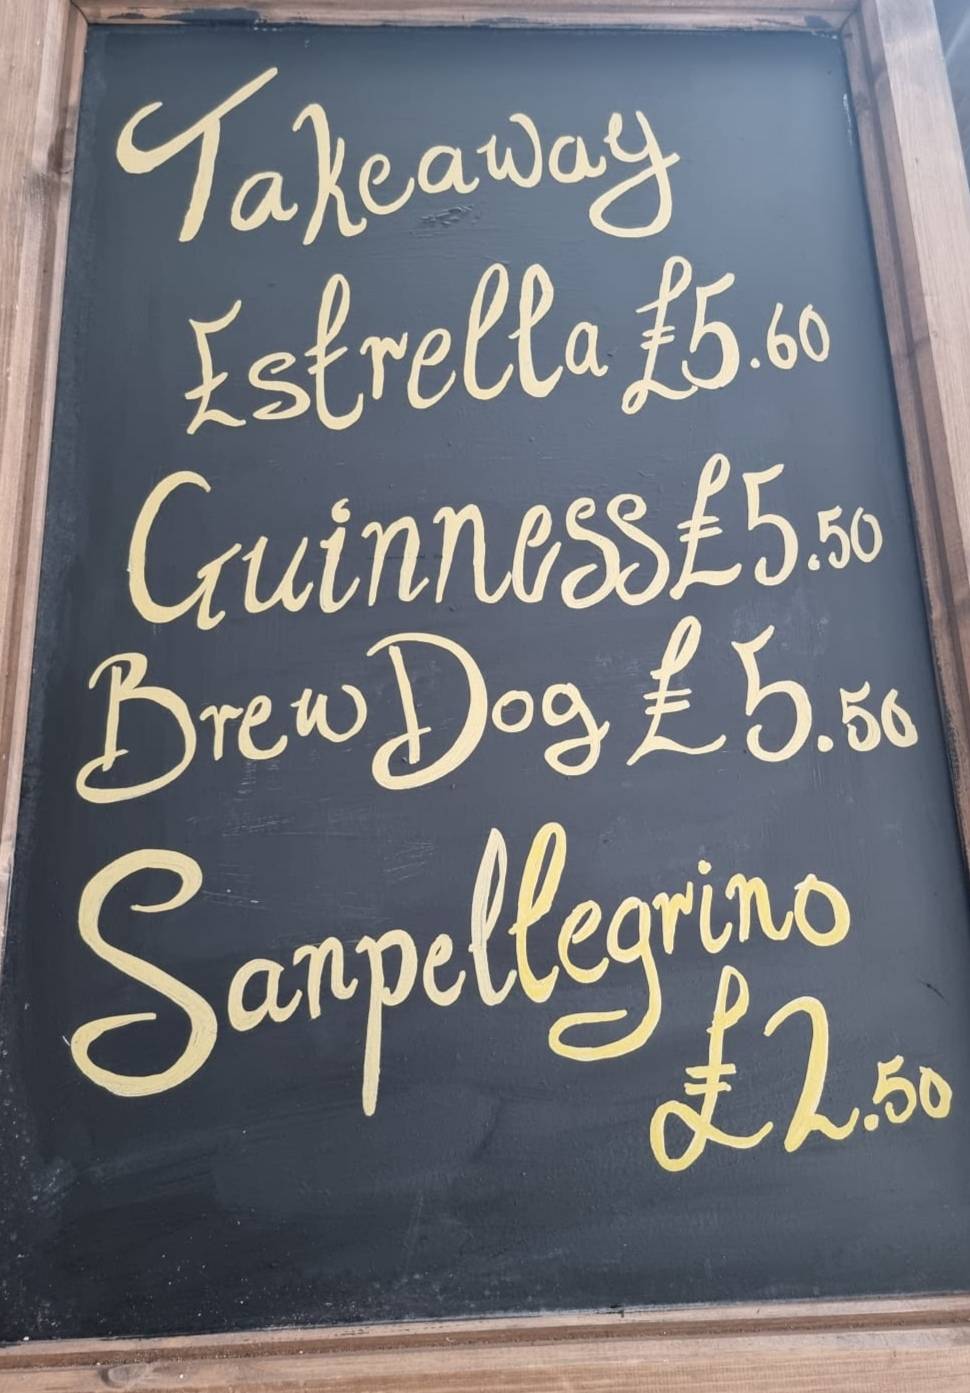 Takeaway
Estrella £5.60
Guinness £5.50
BrewDog £5.50
Sanpellegrino
£2.50